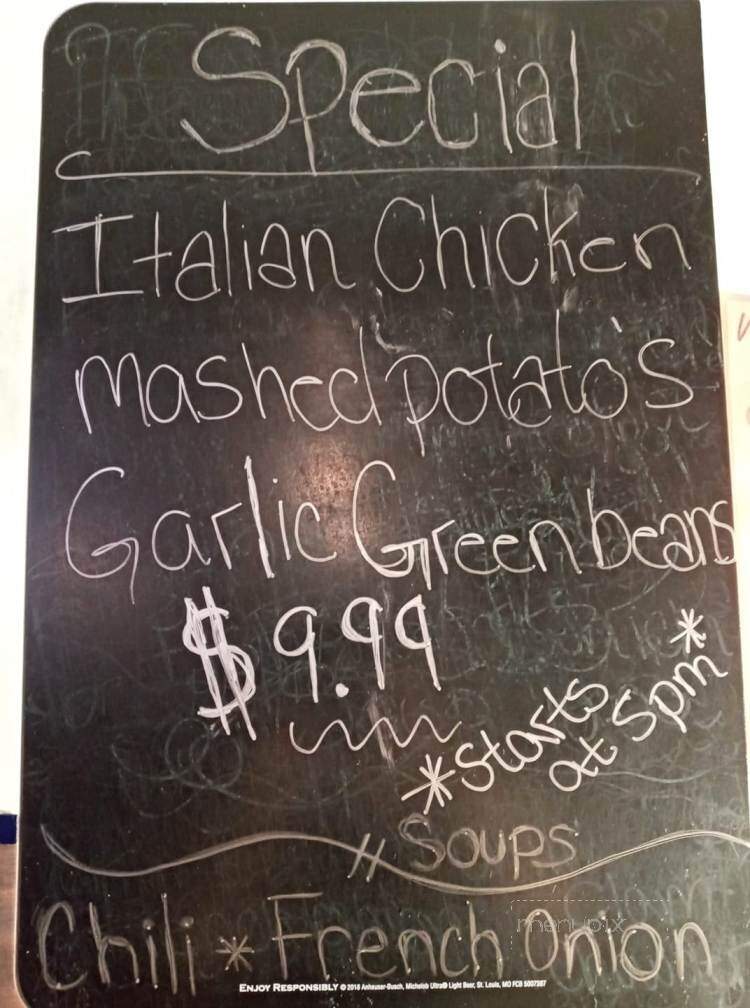 Special
Italian Chicken
Mashed potato's
Garlic Green beans
$9.99
*Starts
at 5pm*
Soups
Chili * French Onion
menupix
ENJOY RESPONSIBLY © 2018 Anheuser-Busch, Michelob Ultra® Light Beer, St. Louis, MO FCB 5007387